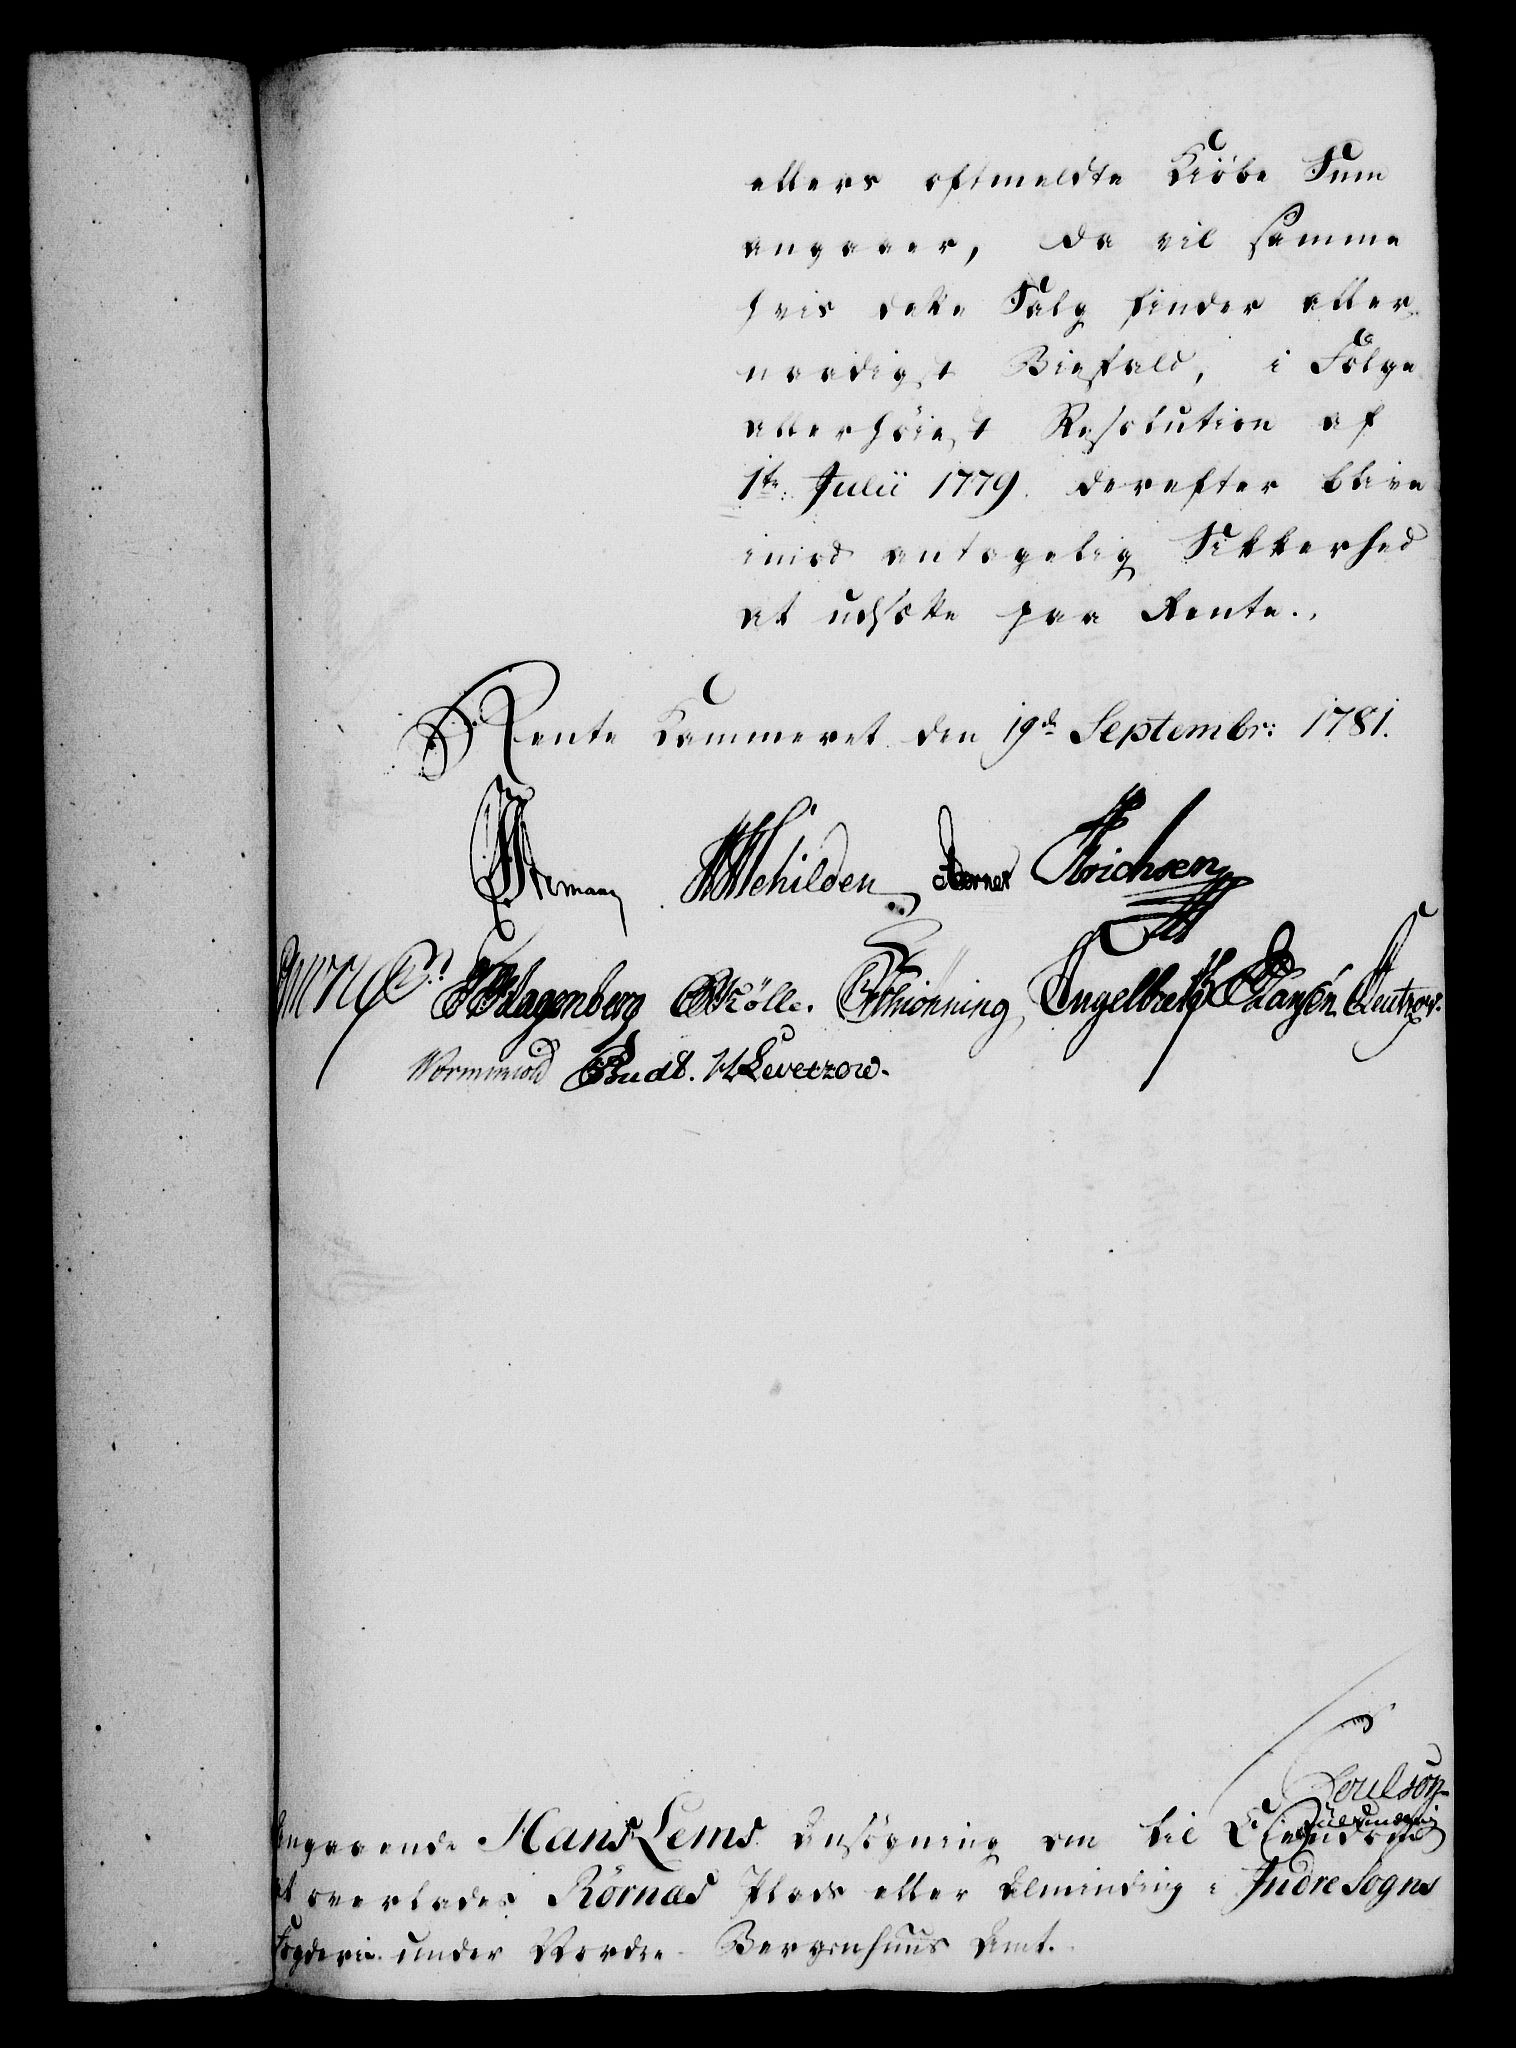 ellers oftmeldte Kiöbe Sum
angaaer, da vil samme
hvis dette Salg finder aller-
naadigst Biefald, i Fölge
allerhöiest Resolution af
1te Julii 1779. derefter blive
imod antagelig Sikkerhed
at udsætte paa Rente.
Rente Kammeret den 19de Septembr: 1781.
Stemann HHSchilden Berner Erichsen
Klagenberg Kölle. Schiönning, Engelbreth Hansen Leutzow.
Wormskiold Budtz. Levetzow.
Poulson
Angaaende Hans Lems Ansögning om til Eiendom
at overlades Rörnæs Plads eller Alminding i Indre Sogns
Fogderie under Nordre Bergenhuus Amt.